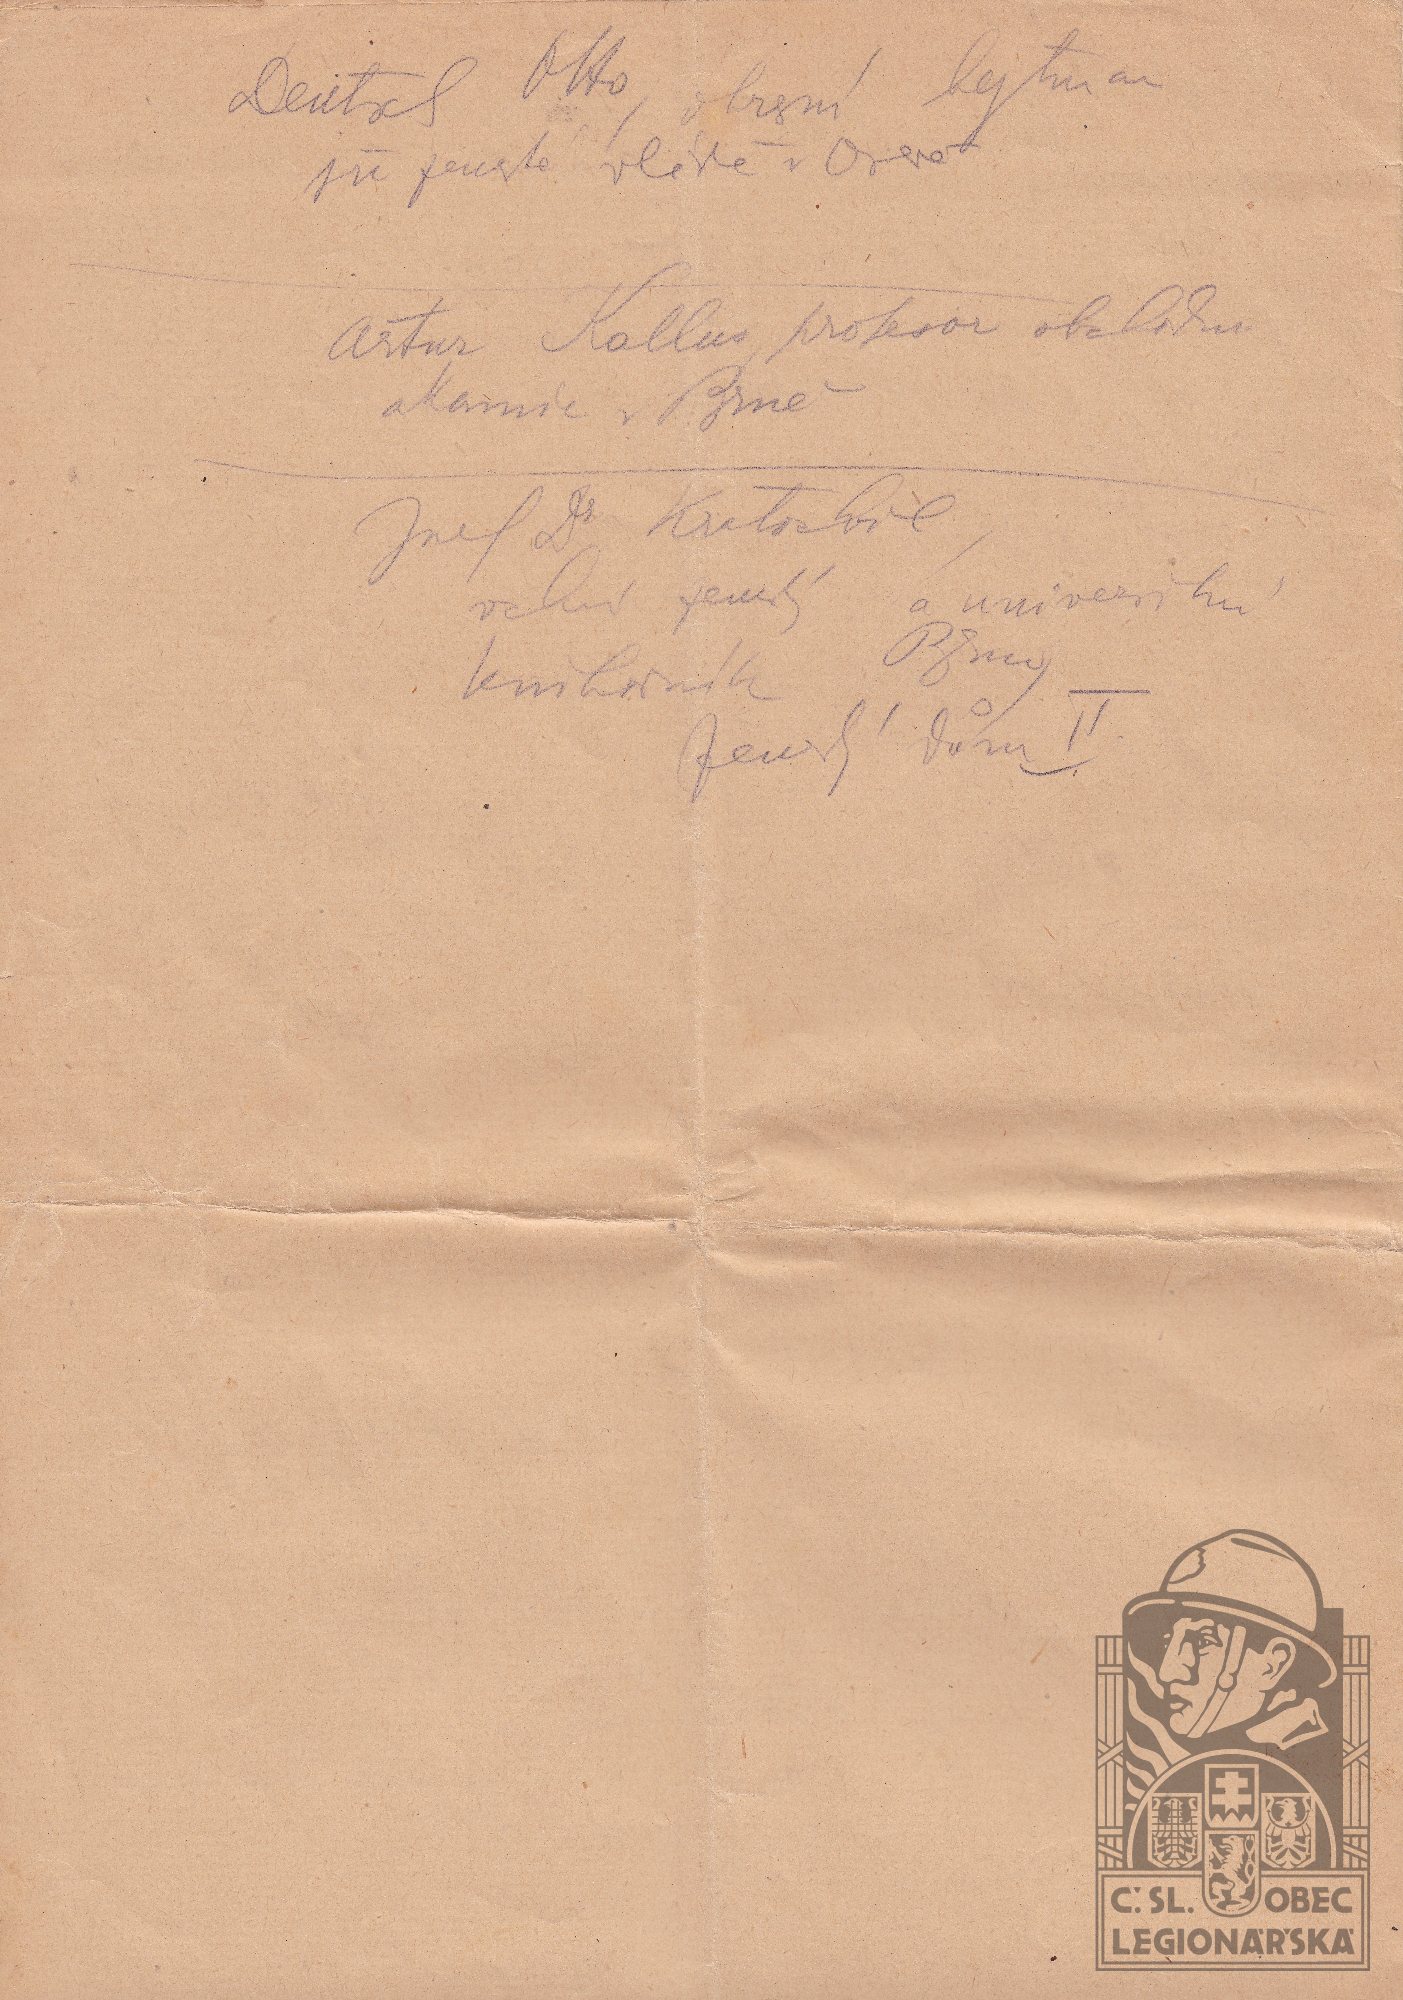 Deutsch Otto, okresní hejtman
při zemské vládě v Opavě
Artur Kallus, profesor obchodní
akamie v Brně
Josef Dr Kratochvil,
vrchní zemský a universitní
knihovník Brno,
Zemský dům II.
Č. SL. OBEC
LEGIONÁŘSKÁ